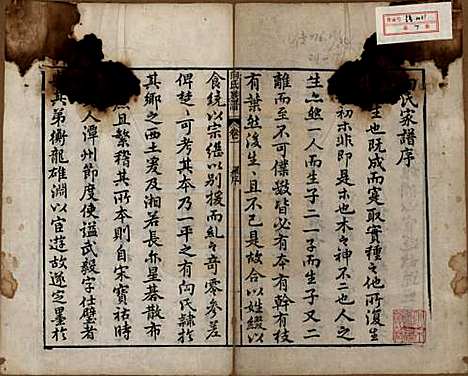 向氏家譜序
生也既成而實取實種之他所復生
初木非即是木也木之神不二也人之
生亦然一人而生子二一子而生子又二
離而至不可僕數皆必有本有幹有枝
有葉然後生且不已是故合以姓綴以
食統以宗継以别援而亂之奇零參差
俾楚之可考其本乃一平之有向氏隷於
其鄉之西土爰及湘若長亦星碁散布
且繁稽其所本則自宋寳祐時
人潭州節度使諡武毅字仕璧者
其弟衡龍雄淵以官遊故遂定墨於
向氏族譜
卷一